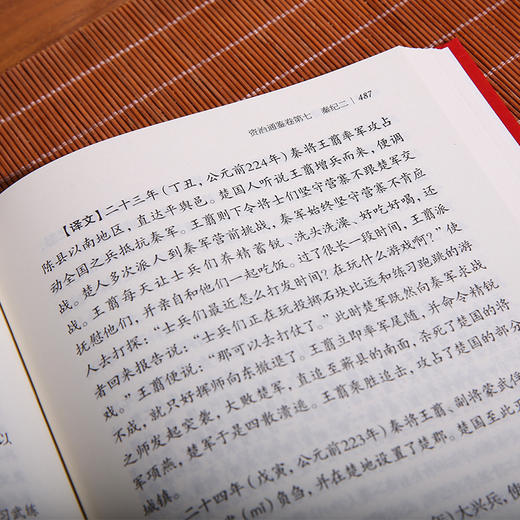 资治通鉴卷第七 秦纪二 | 487
【译文】二十三年(丁丑,公元前224年)秦将王翦率军攻占
陈县以南地区,直达平舆邑。楚国人听说王翦增兵而来,便调
动全国之兵抵抗秦军。王翦则下令将士们坚守营寨不跟楚军交
战。楚人多次派人到秦军营前挑战,秦军始终坚守营寨不肯应
战。王翦每天让士兵们养精蓄锐、洗头洗澡、好吃好喝,还
抚慰他们,并亲自和他们一起吃饭。过了很长一段时间,王翦派
人去打探:“士兵们最近怎么打发时间?在玩什么游戏啊?”使
者回来报告说:“士兵们正在玩投掷石块比远和练习跑跳的游
戏。”王翦便说:“那可以去打仗了。”此时楚军既然向秦军求战
不成,就只好挥师向东撤退了。王翦立即率军尾随,并命令精锐
之师发起突袭,大败楚军,直追至蕲县的南面,杀死了楚国的将
军项燕,楚军于是四散溃逃。王翦乘胜追击,攻占了楚国的部分
城镇。
二十四年(戊寅,公元前223年)秦将王翦、副将蒙武俘
(mǐ)负刍,并在楚地设置了楚郡。楚国至此
年)大兴兵,使
以
习武练